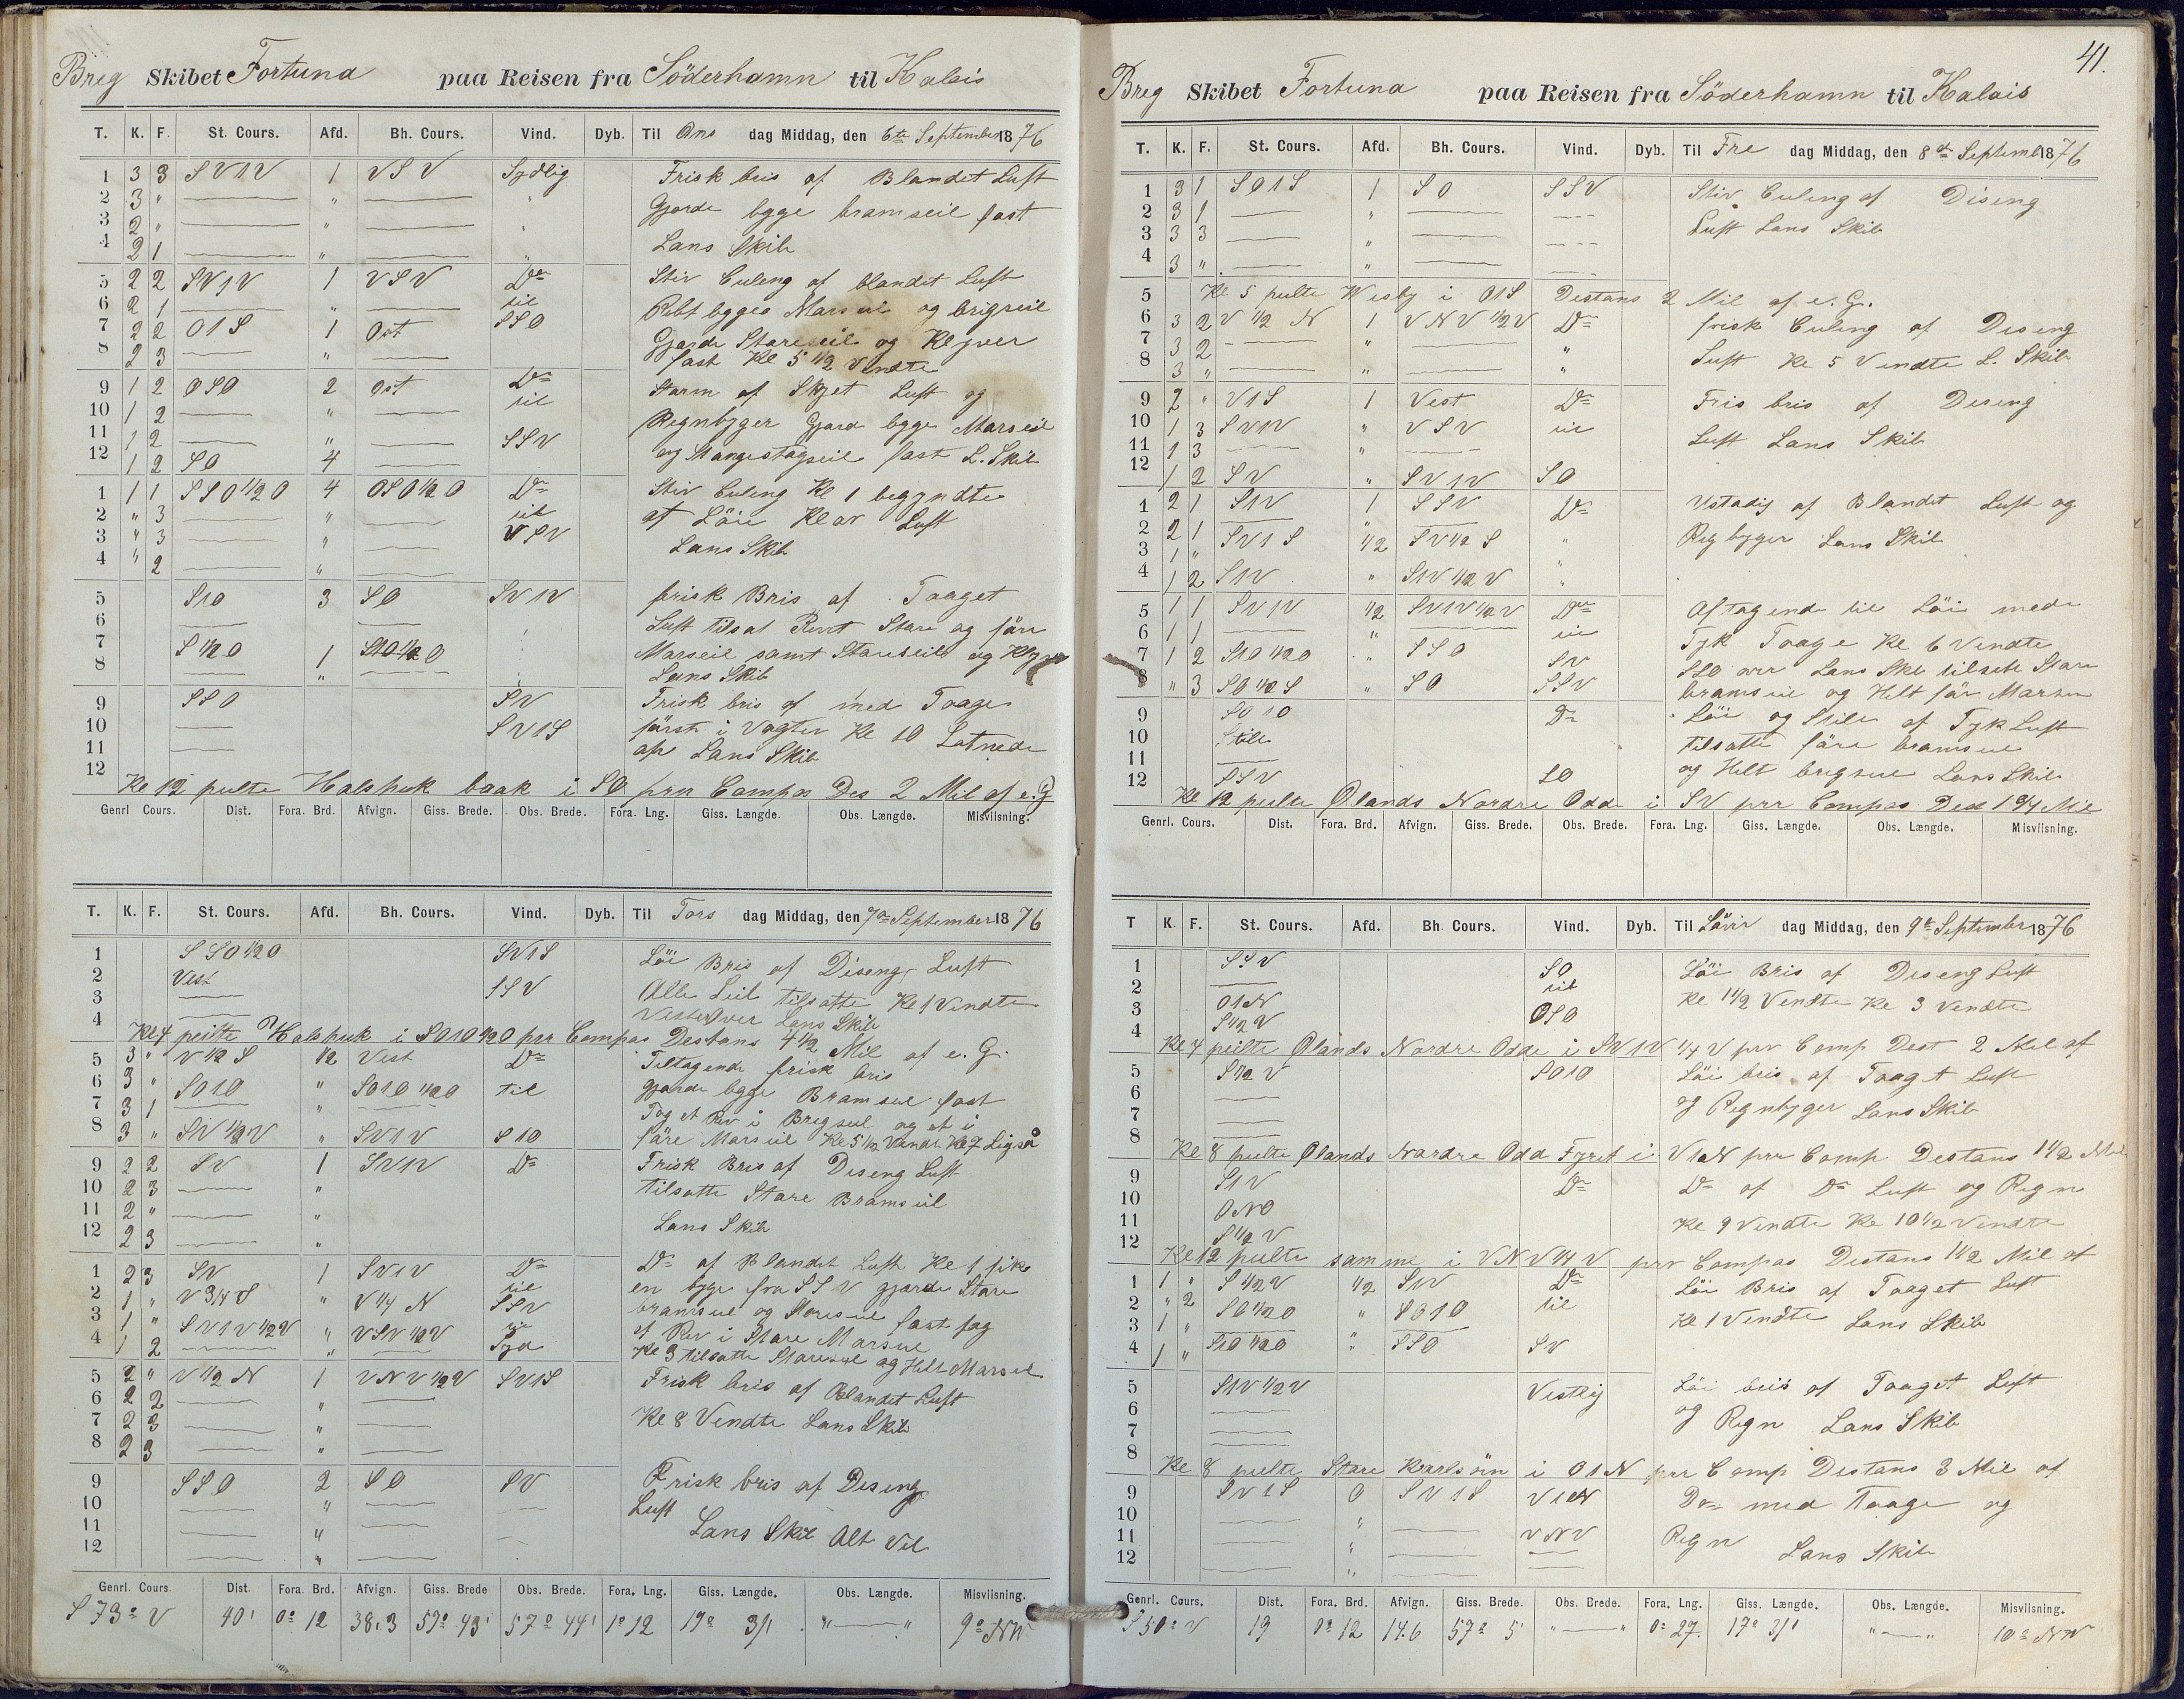 Breg Skibet Fortuna paa Reisen fra Söderhamn til Kalais
T. K. F. St. Cours. Afd. Bh. Cours. Vind. Dyb. Til Ons dag Middag, den 6te September 1876
1 3 3 SV1V 1 VSV Sydlig Frisk bris af Blandet Luft
2 3 " " Gjorde bygge bramseil fast
3 2 " " Lans Skib
4 2 1 "
5 2 2 SV1V 1 VSV Do Stiv Culing af blandet Luft
6 2 1 " til Rebt bgges Marseil og brigseil
7 2 2 O1S 1 Ost SSO Gjorde Stareseil og Klyver
8 2 3 " fast Kl 5 1/2 Vendte
9 1 2 OSO 2 Ost Do Storm af Skyet Luft og
10 1 2 " til Regnbyger Gjord bgge Marseil
11 1 2 " SSV og Mangestagseil fast L. Skib
12 1 2 SO 4
1 1 1 SSO 1/2 O 4 OSO 1/2 O Do Stiv Culing Kl 1 begyndte
2 " 3 " til at Löie Klar Luft
3 " 3 " VSV Lans Skib
4 " 2 "
5 S1O 3 SO SV1V frisk Bris af Taaget
6 Luft tilsat Revt Stare og före
7 S 1/2 O 1 Marseil samt Stareseil og Klyver
8 " Lans Skib
9 SSO SV Frisk bris af med Taage
10 SV1S först i Vagten Kl 10 Letnede
11 af Lans Skib
12
Kl 12 peilte Halshuk baak i SO prr Compas Des 2 Mil af e. G
Genrl Cours. Dist. Fora. Brd. Afvign. Giss. Brede. Obs. Brede. Fora. Lng. Giss. Længde. Obs. Længde. Misviisning.
T. K. F. St. Cours. Afd. Bh. Cours. Vind. Dyb. Til Tors dag Middag, den 7de September 1876
1 SSO 1/2 O SV1S Löi Bris af Diseng Luft
2 Vest Alle Seil tilsatte Kl 1 Vendte
3 SSV Vestover Lans Skib
4
Kl 4 peilte Halshuk i SO1O 1/2 O prr Compas Destans 4 1/2 Mil af e. G.
5 3 " V 1/2 S 1/2 Vest Do Tiltagende frisk bris
6 3 " SO1O " SO1O 1/2 O til gjorde bgge Bramseil fast
7 3 1 " Tog et Rev i Bregseil og et i
8 3 " SV 1/2 V " SV1V S1O före Marseil Kl 5 1/2 Vendt Kl 7 Ligeså
9 2 2 SV 1 SV1V Do Frisk Bris af Diseng Luft
10 2 3 " tilsatte Stare Bramseil
11 2 " " Lans Skib
12 2 3 "
1 2 3 SV 1 SV1V Do Do af Blandet Luft Kl 1 fik
2 1 " V 3/4 S " V 1/4 N til en byge fra SSV gjorde Stare
3 1 " SV1V 1/2 V " VSV 1/2 V SSV bramseil og Storeseil fast tog
4 1 2 " til Syd et Rev i Stare Marseil
Kl 3 tilsatte Stareseil og Helt Marseil
5 2 " V 1/2 N 1 VNV 1/2 V SV1S Frisk bris af Blandet Luft
6 2 2 " Kl 8 Vendte Lans Skib
7 2 3 "
8 2 3 "
9 SSO 2 SO SV Frisk bris af Diseng
10 " Luft
11 " Lans Skib Alt Vel
12 "
Genrl. Cours Dist. Fora. Brd. Afvign. Giss. Brede Obs. Brede. Fora. Lng. Giss. Længde. Obs. Længde. Misviisning.
S 73° V 40' 0° 12 38.3 57° 43' 57° 44' 1° 12 17° 31 " — " 9° NW
41.
Breg Skibet Fortuna paa Reisen fra Söderhamn til Kalais
T. K. F. St. Cours. Afd. Bh. Cours. Vind. Dyb. Til Fre dag Middag, den 8de Septembr 1876
1 3 1 SO1S 1 SO SSV Stiv Culing af Diseng
2 3 1 " Luft Lans Skib
3 3 3 "
4 3 " "
5 Kl 5 peilte Wisby i O1S Destans 2 Mil af e. G.
6 3 2 V 1/2 N 1 VNV 1/2 V Do frisk Culing af Diseng
7 3 2 " " Luft Kl 5 Vendte L. Skib
8 3 " " "
9 2 " V1S 1 Vest Do Fris bris af Diseng
10 1 3 SV1V " VSV til Luft Lans Skib
11 1 3 "
12 1 2 SV " SV1V SO
1 2 1 S1V 1 SSV Do Ustadig af Blandet Luft og
2 2 1 " Regbyger Lans Skib
3 1 " SV1S 1/2 SV 1/2 S "
4 1 2 S1V " S1V 1/2 V "
5 1 1 SV1V 1/2 SV1V 1/2 V Do Aftagende til Löi med
6 1 1 " til Tyk Taage Kl 6 Vendte
7 1 2 S1O 1/2 O " SSO SV SSO over Lans Skb tilsatte Stare
8 " 3 SO 1/2 S " SO SSV bramseil og Helt för Marsen
9 SO1O Do Löi og Stile af Tyk Luft
10 Stile tilsatte före bramseil
11 og Helt bregseil Lans Skib
12 SSV SO
Kl 12 peilte Ølands Nordre Odde i SV prr Compas Dest 1 3/4 Mil
Genrl. Cours. Dist. Fora. Brd. Afvign. Giss. Brede. Obs. Brede. Fora. Lng. Giss. Længde. Obs. Længde. Misviisning.
T K. F. St. Cours. Afd. Bh Cours. Vind. Dyb. Til Löver dag Middag, den 9de September 1876
1 SSV SO Löi Bris af Diseng Luft
2 til Kl 1 1/2 Vendte Kl 3 Vendte
3 O1N OSO
4 S 1/2 V
Kl 4 peilte Ølands Nordre Odde i SV1V 1/4 V prr Comp Dest 2 Mil af
5 S 1/2 V SO1O Löi bris af Taaget Luft
6 og Regnbyger Lans Skib
7
8
Kl 8 peilte Ølands Nardre Odd Fyret i V1N prr Comp Destans 1 1/2 Mil
9 S1V Do Do af Do Luft og Regn
10 ONO Kl 9 Vendte Kl 10 1/2 Vendte
11
12 S 1/2 V
Kl 12 peilte samme i VNV 1/4 V prr Compas Destans 1 1/2 Mil af
1 1 " S 1/2 V 1/2 S1V Do Löi Bris af Taaget Luft
2 " 2 SO 1/2 O " SO1O til Kl 1 Vendte Lans Skib
3 1 "
4 1 " S1O 1/2 O " SSO SV
5 S1V 1/2 V Vestlig Löi bris af Taaget Luft
6 og Regn Lans Skib
7
8
Kl 8 peilte Stare Karlsöin i O1N prr Comp Destans 3 Mil af
9 SV1S 0 SV1S V1N Do med Taage og
10 " Regn Lans Skib
11 " VNV
12 "
Genrl. Cours. Dist. Fora. Brd. Afvign. Giss. Brede. Obs. Brede. Fora. Lng. Giss. Længde. Obs. Længde. Misviisning.
S 50° V 19 0° 12 14.6 57° 5' " — " 0° 27. 17° 31' " — " 10° NW